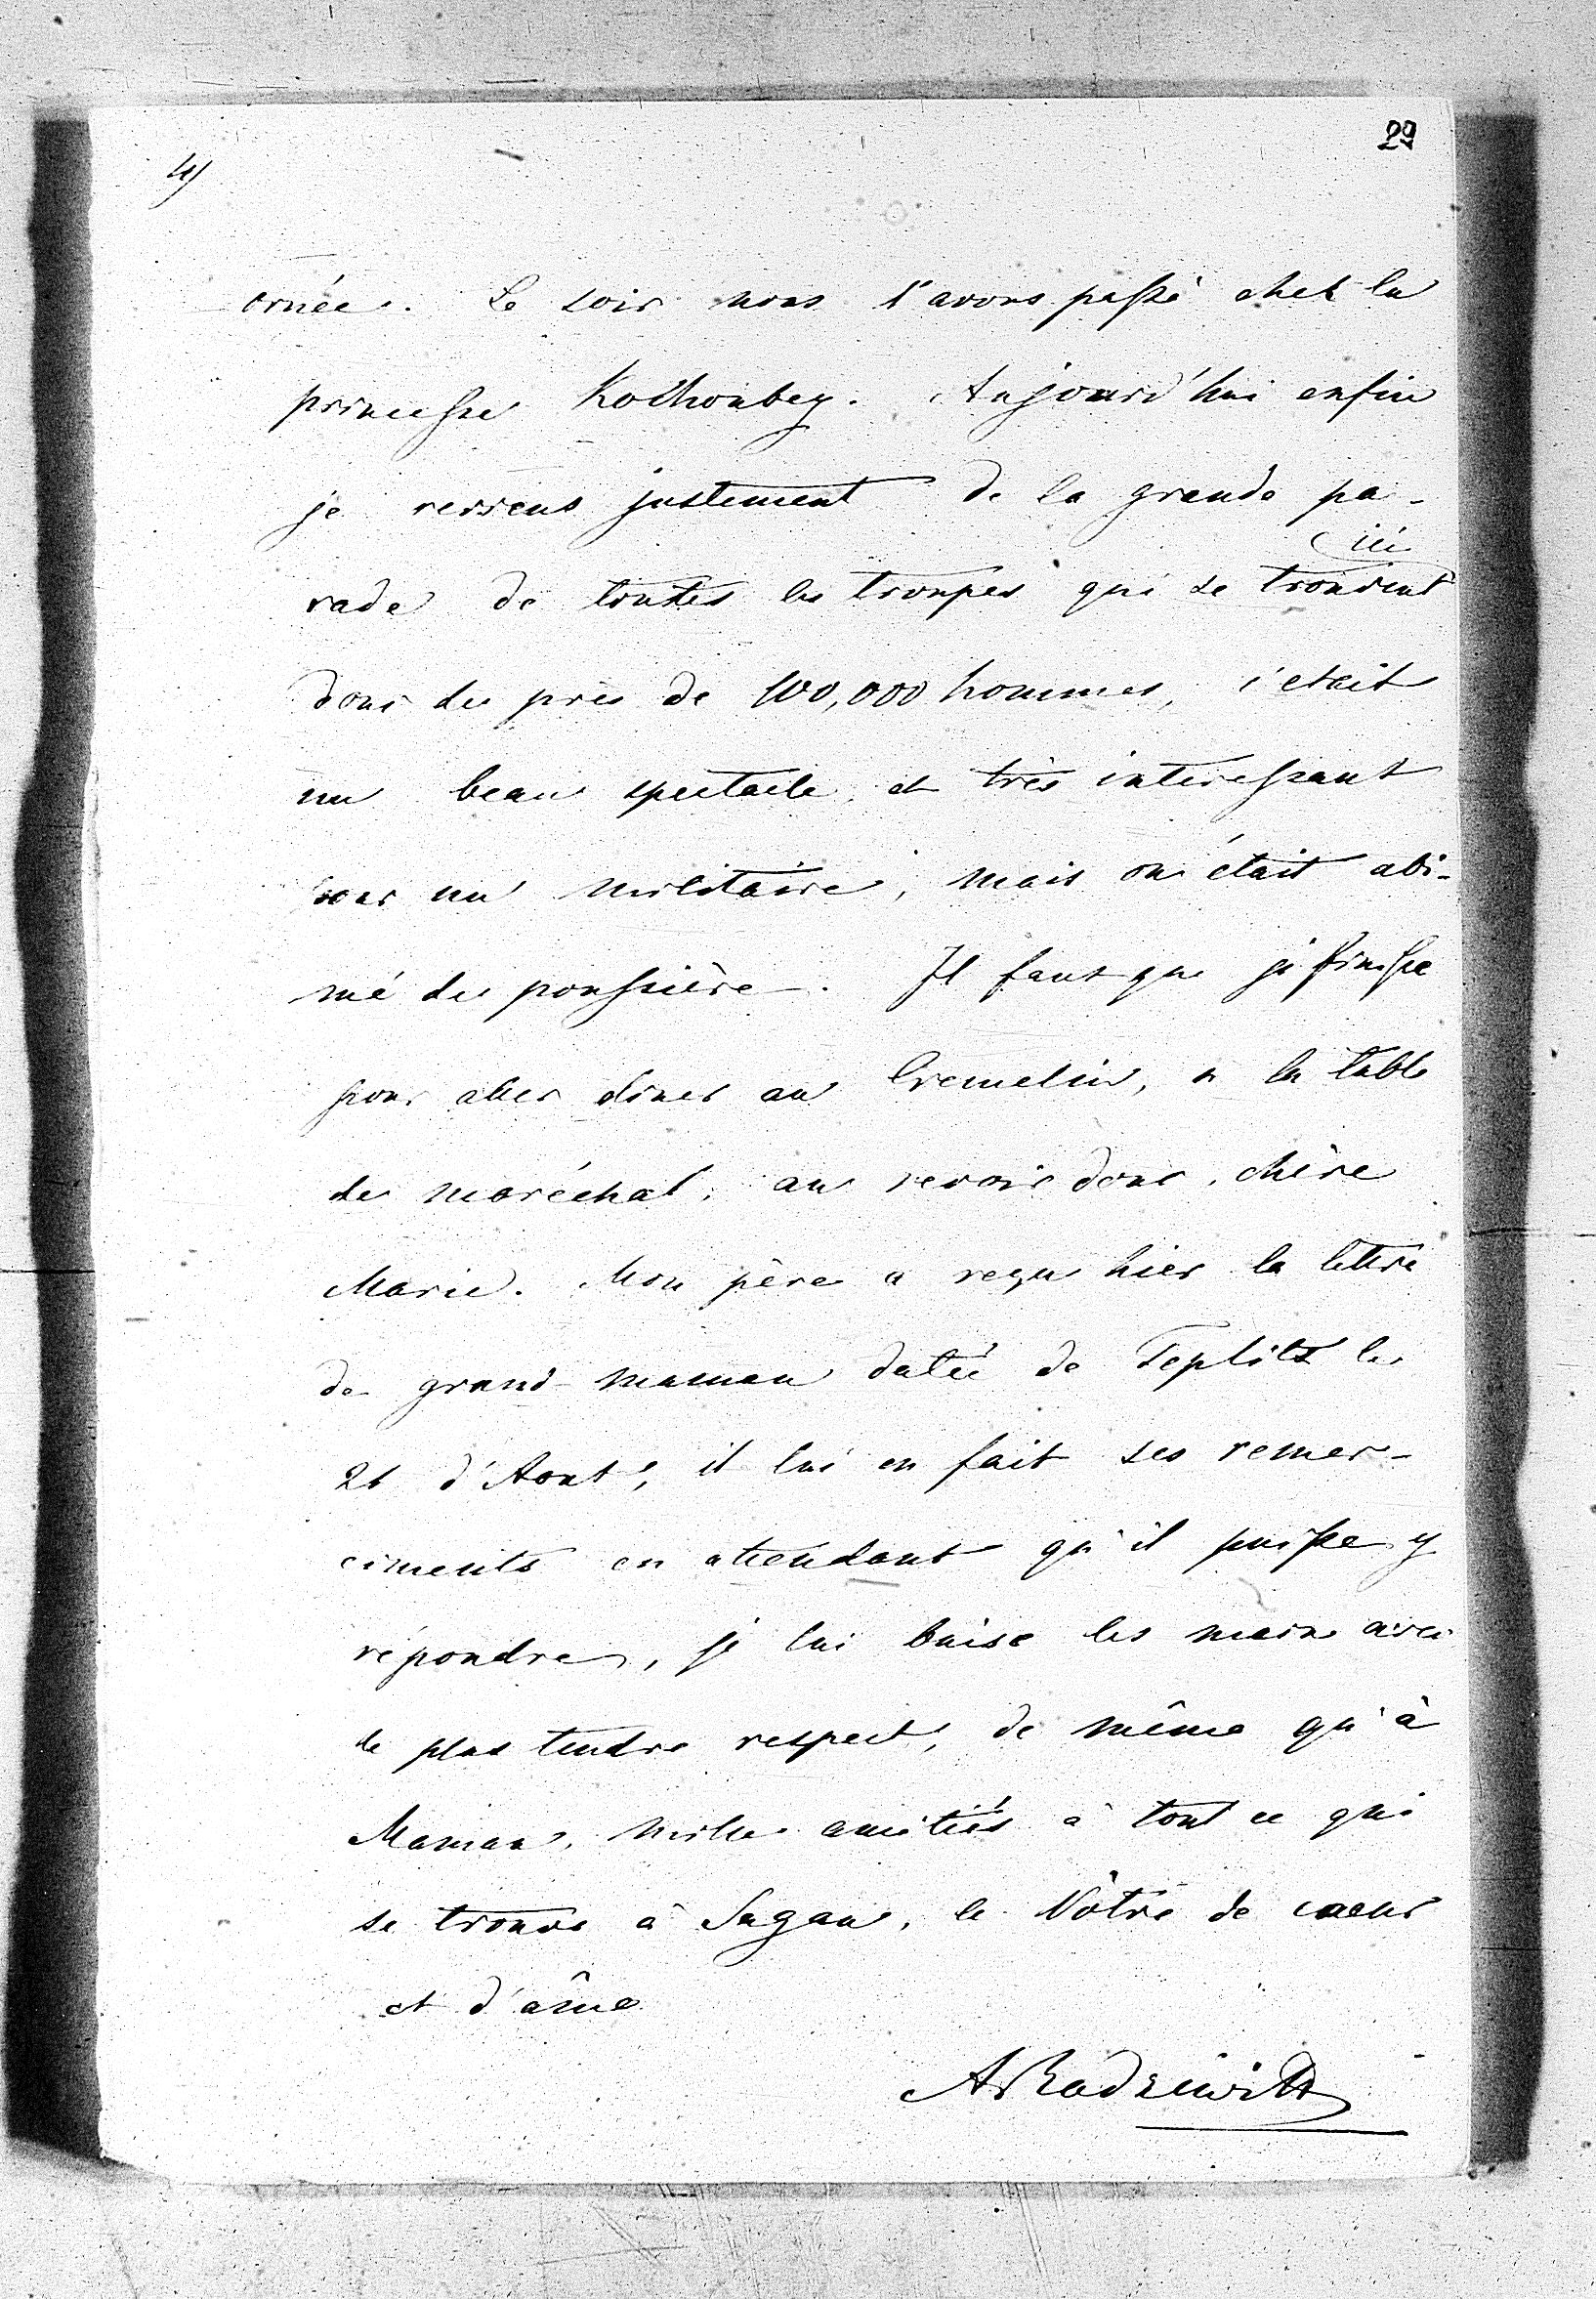 29
4)
ornée. Le soir nous l'avons passé chez la
princesse Kotchoubey. Aujourd'hui enfin
je reviens justement de la grande pa-
ici
rade de toutes les troupes qui se trouvent
donc de près de 100,000 hommes, c'etait
un beau spectacle, et très interessant
pour un militaire, mais on était abi-
mé de poussière. Il faut que je finisse
pour aller diner au Cremelin, a la table
de maréchal, au revoir donc, chère
Marie. Mon père a reçu hier la lettre
de grand-maman datée de Teplitz le
21 d'Aout, il lui en fait ses remer-
ciments en attendant qu'il puisse y
répondre, je lui baise les mains avec
le plus tendre respect, de même qu'à
Maman, mille amitiés à tout ce qui
se trouve à Sagan, le Vôtre de coeur
et d'âme
A Radziwill